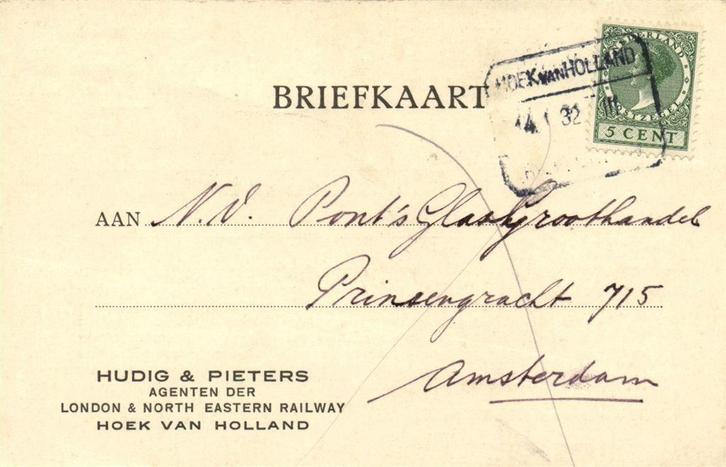 NEDERLAND
HOEK VAN HOLLAND
32 III
5 CENT
BRIEFKAART
AAN N.V. Pont's Glasgroothandel
Prinsengracht 715
Amsterdam
HUDIG & PIETERS
AGENTEN DER
LONDON & NORTH EASTERN RAILWAY
HOEK VAN HOLLAND